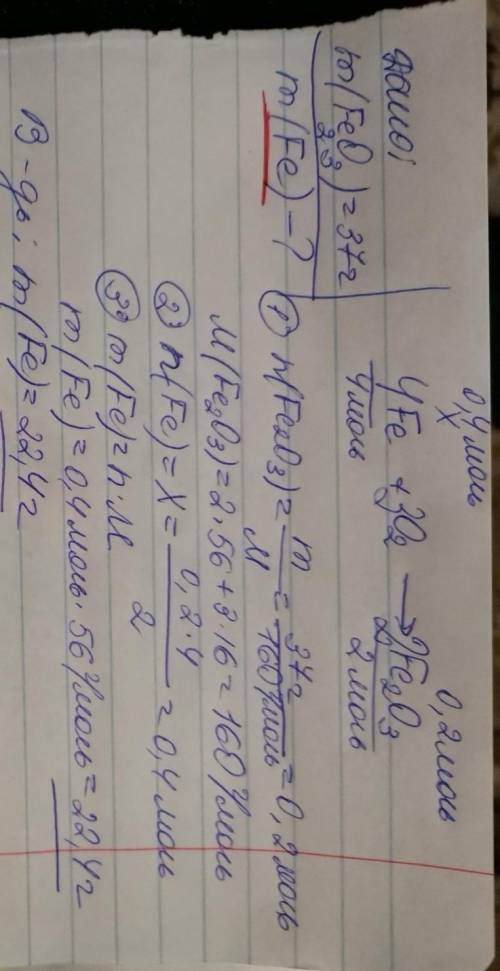 Дано:
m(Fe₂O₃)=37г
m(Fe)-?
0,4моль 0,2моль
x
4Fe + 3O₂ → 2Fe₂O₃
4моль 2моль
① n(Fe₂O₃)= m/M = 37г/160г/моль = 0,2моль
M(Fe₂O₃)=2·56+3·16=160г/моль
② n(Fe)=X= 0,2·4/2 =0,4моль
③ m(Fe)=n·M
m(Fe)=0,4моль·56г/моль=22,4г
В-дь; m(Fe)=22,4г